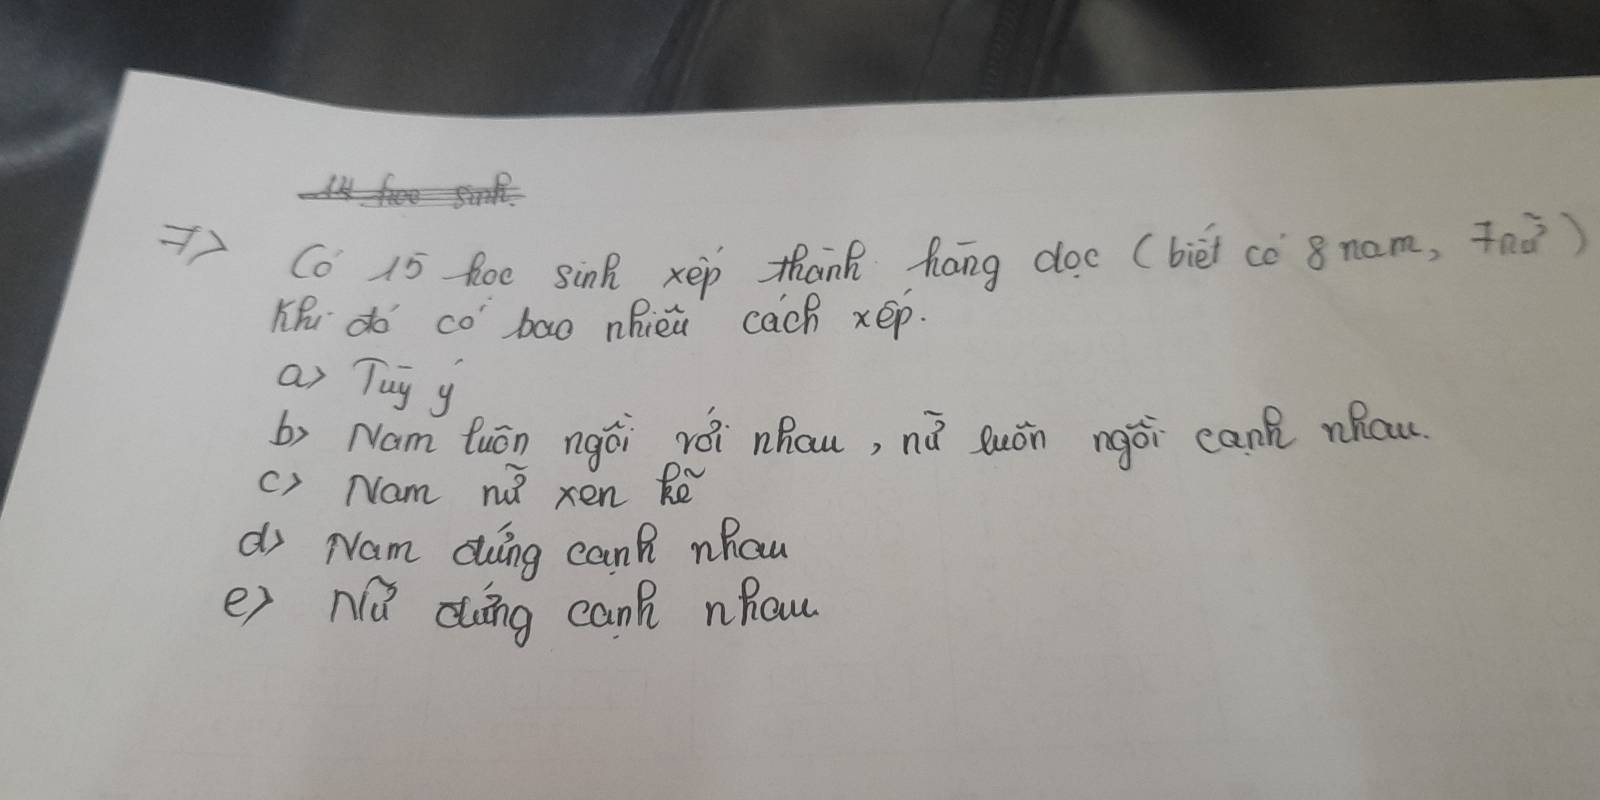 14 học sinh.
7> Có 15 học sinh xếp thành hàng dọc (biết có 8 nam, 7 nữ)
Khi đó có bao nhiêu cách xếp.
a> Tùy ý
b> Nam luôn ngồi với nhau, nữ luôn ngồi cạnh nhau.
c> Nam nữ xen kẽ
d> Nam đứng cạnh nhau
e> Nữ đứng cạnh nhau